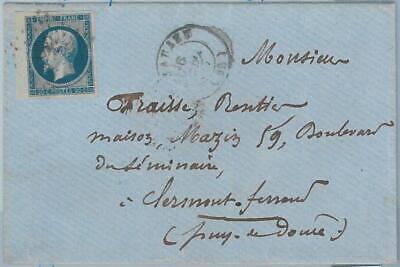 EMPIRE FRANC
20 C POSTES 20 C
Monsieur
Fraisse, Rentier
maison Mazin 59, Boulevard
du Séminaire,
à Clermont-ferrand
(puy-de dôme)